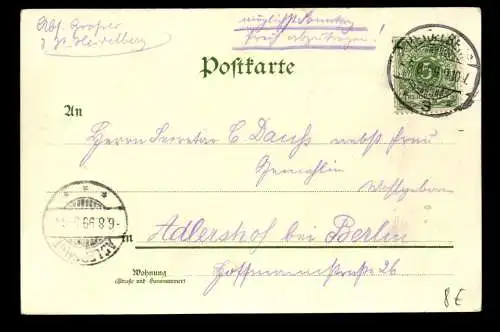 Abs. Grosser
z. Zt. Heidelberg
möglichst Sonntag
früh abzutragen!
Postkarte
An
Herrn Secretar C. Dauss nebst Frau
Gemahlin
Wohlgeboren
in Adlershof bei Berlin
Wohnung
(Straße und Hausnummer)
Hoffmannstraße 26
5
ADLERSHOF
8 €